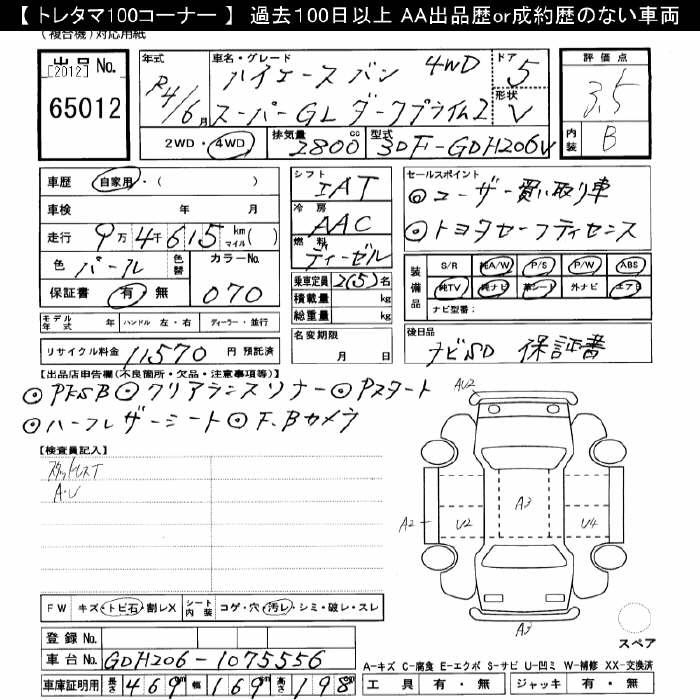 【 トレタマ100コーナー 】 過去100日以上 AA出品歴or成約歴のない車両
(複合機)対応用紙
出品No. [2012] 65012
年式 R4/6月
車名・グレード ハイエースバン 4WD
スーパーGL ダークプライム2
ドア 5
形状 V
評価点 3.5
内装 B
2WD・4WD 排気量 2800 cc 型式 3DF-GDH206V
車歴 自家用・( )
車検 年 月
走行 9万4千615 km マイル( )
色 パール 色替 カラーNo. 070
保証書 有・無
モデル年式 年 ハンドル 左・右 ディーラー・並行
リサイクル料金 11,570 円 預託済
シフト IAT
冷房 AAC
燃料 ディーゼル
乗車定員 2(5)名
積載量 kg
総重量 kg
名変期限 月 日
セールスポイント
◎ユーザー買い取り車
◎トヨタセーフティセンス
装備品 S/R 純A/W P/S P/W ABS
純TV 純ナビ 革シート 外ナビ エアB
ナビ型番:
後日品
ナビSD 保証書
【出品店申告欄(不良箇所・欠品・注意事項等)】
◎PKSB ◎クリアランスソナー ◎Pスタート
◎ハーフレザーシート ◎F、Bカメラ
【検査員記入】
A・U
AU2
A2 U2 A3 U4
A3
スペア
FW キズ・トビ石・割レX シート内装 コゲ・穴・汚レ・シミ・破レ・スレ
登録No.
車台No. GDH206-1075556
車庫証明用 長さ 469 cm 幅 169 cm 高さ 198 cm
A-キズ C-腐食 E-エクボ S-サビ U-凹ミ W-補修 XX-交換済
工具 有・無 ジャッキ 有・無